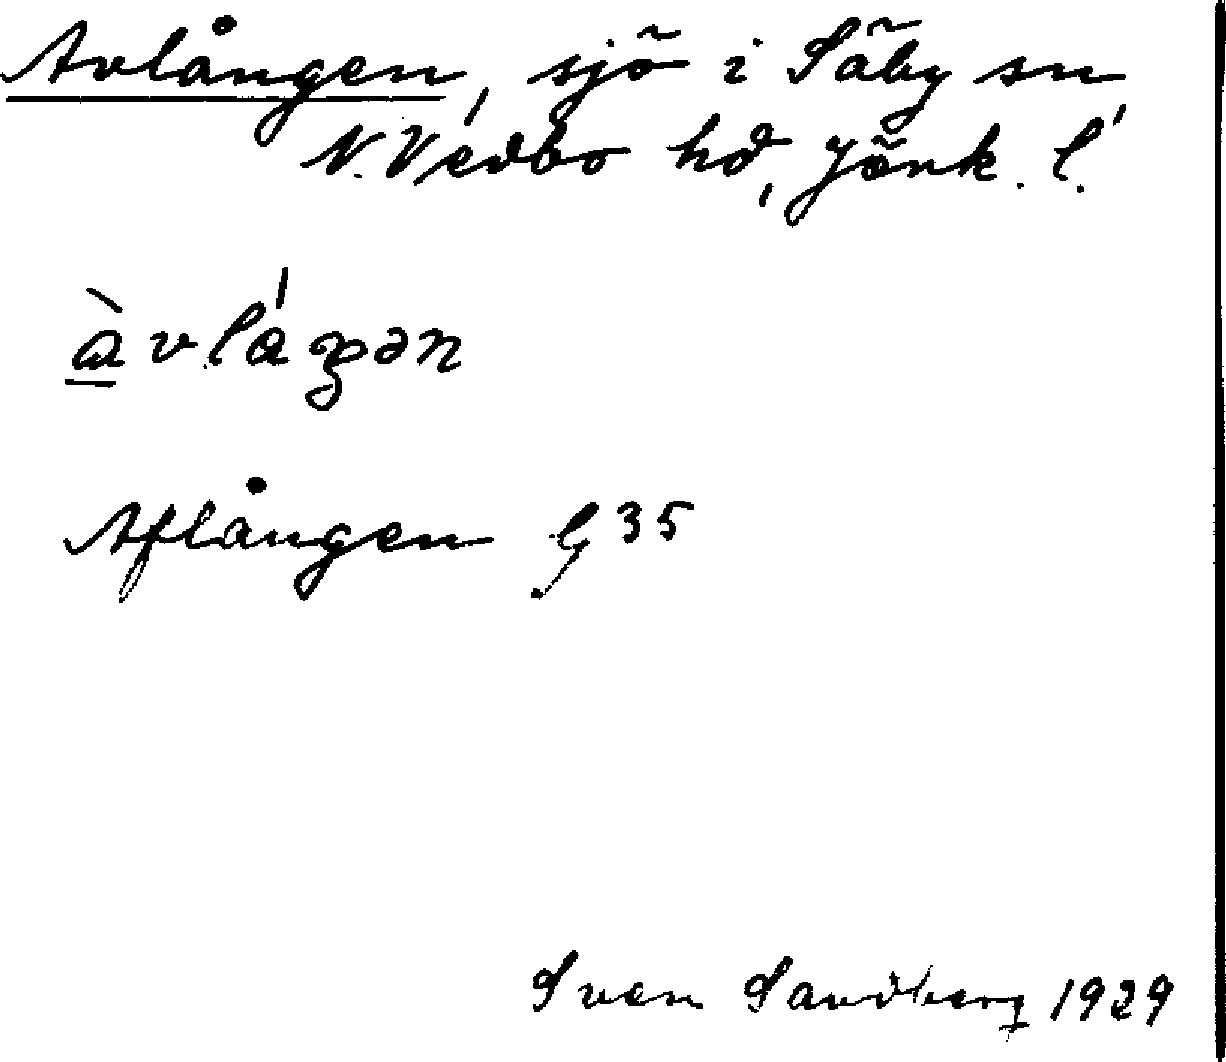 Avlången, sjö i Säby sn
N. Vedbo hd, Jönk. l.
àvláŋən
Aflången G 35
Sven Sandberg 1929